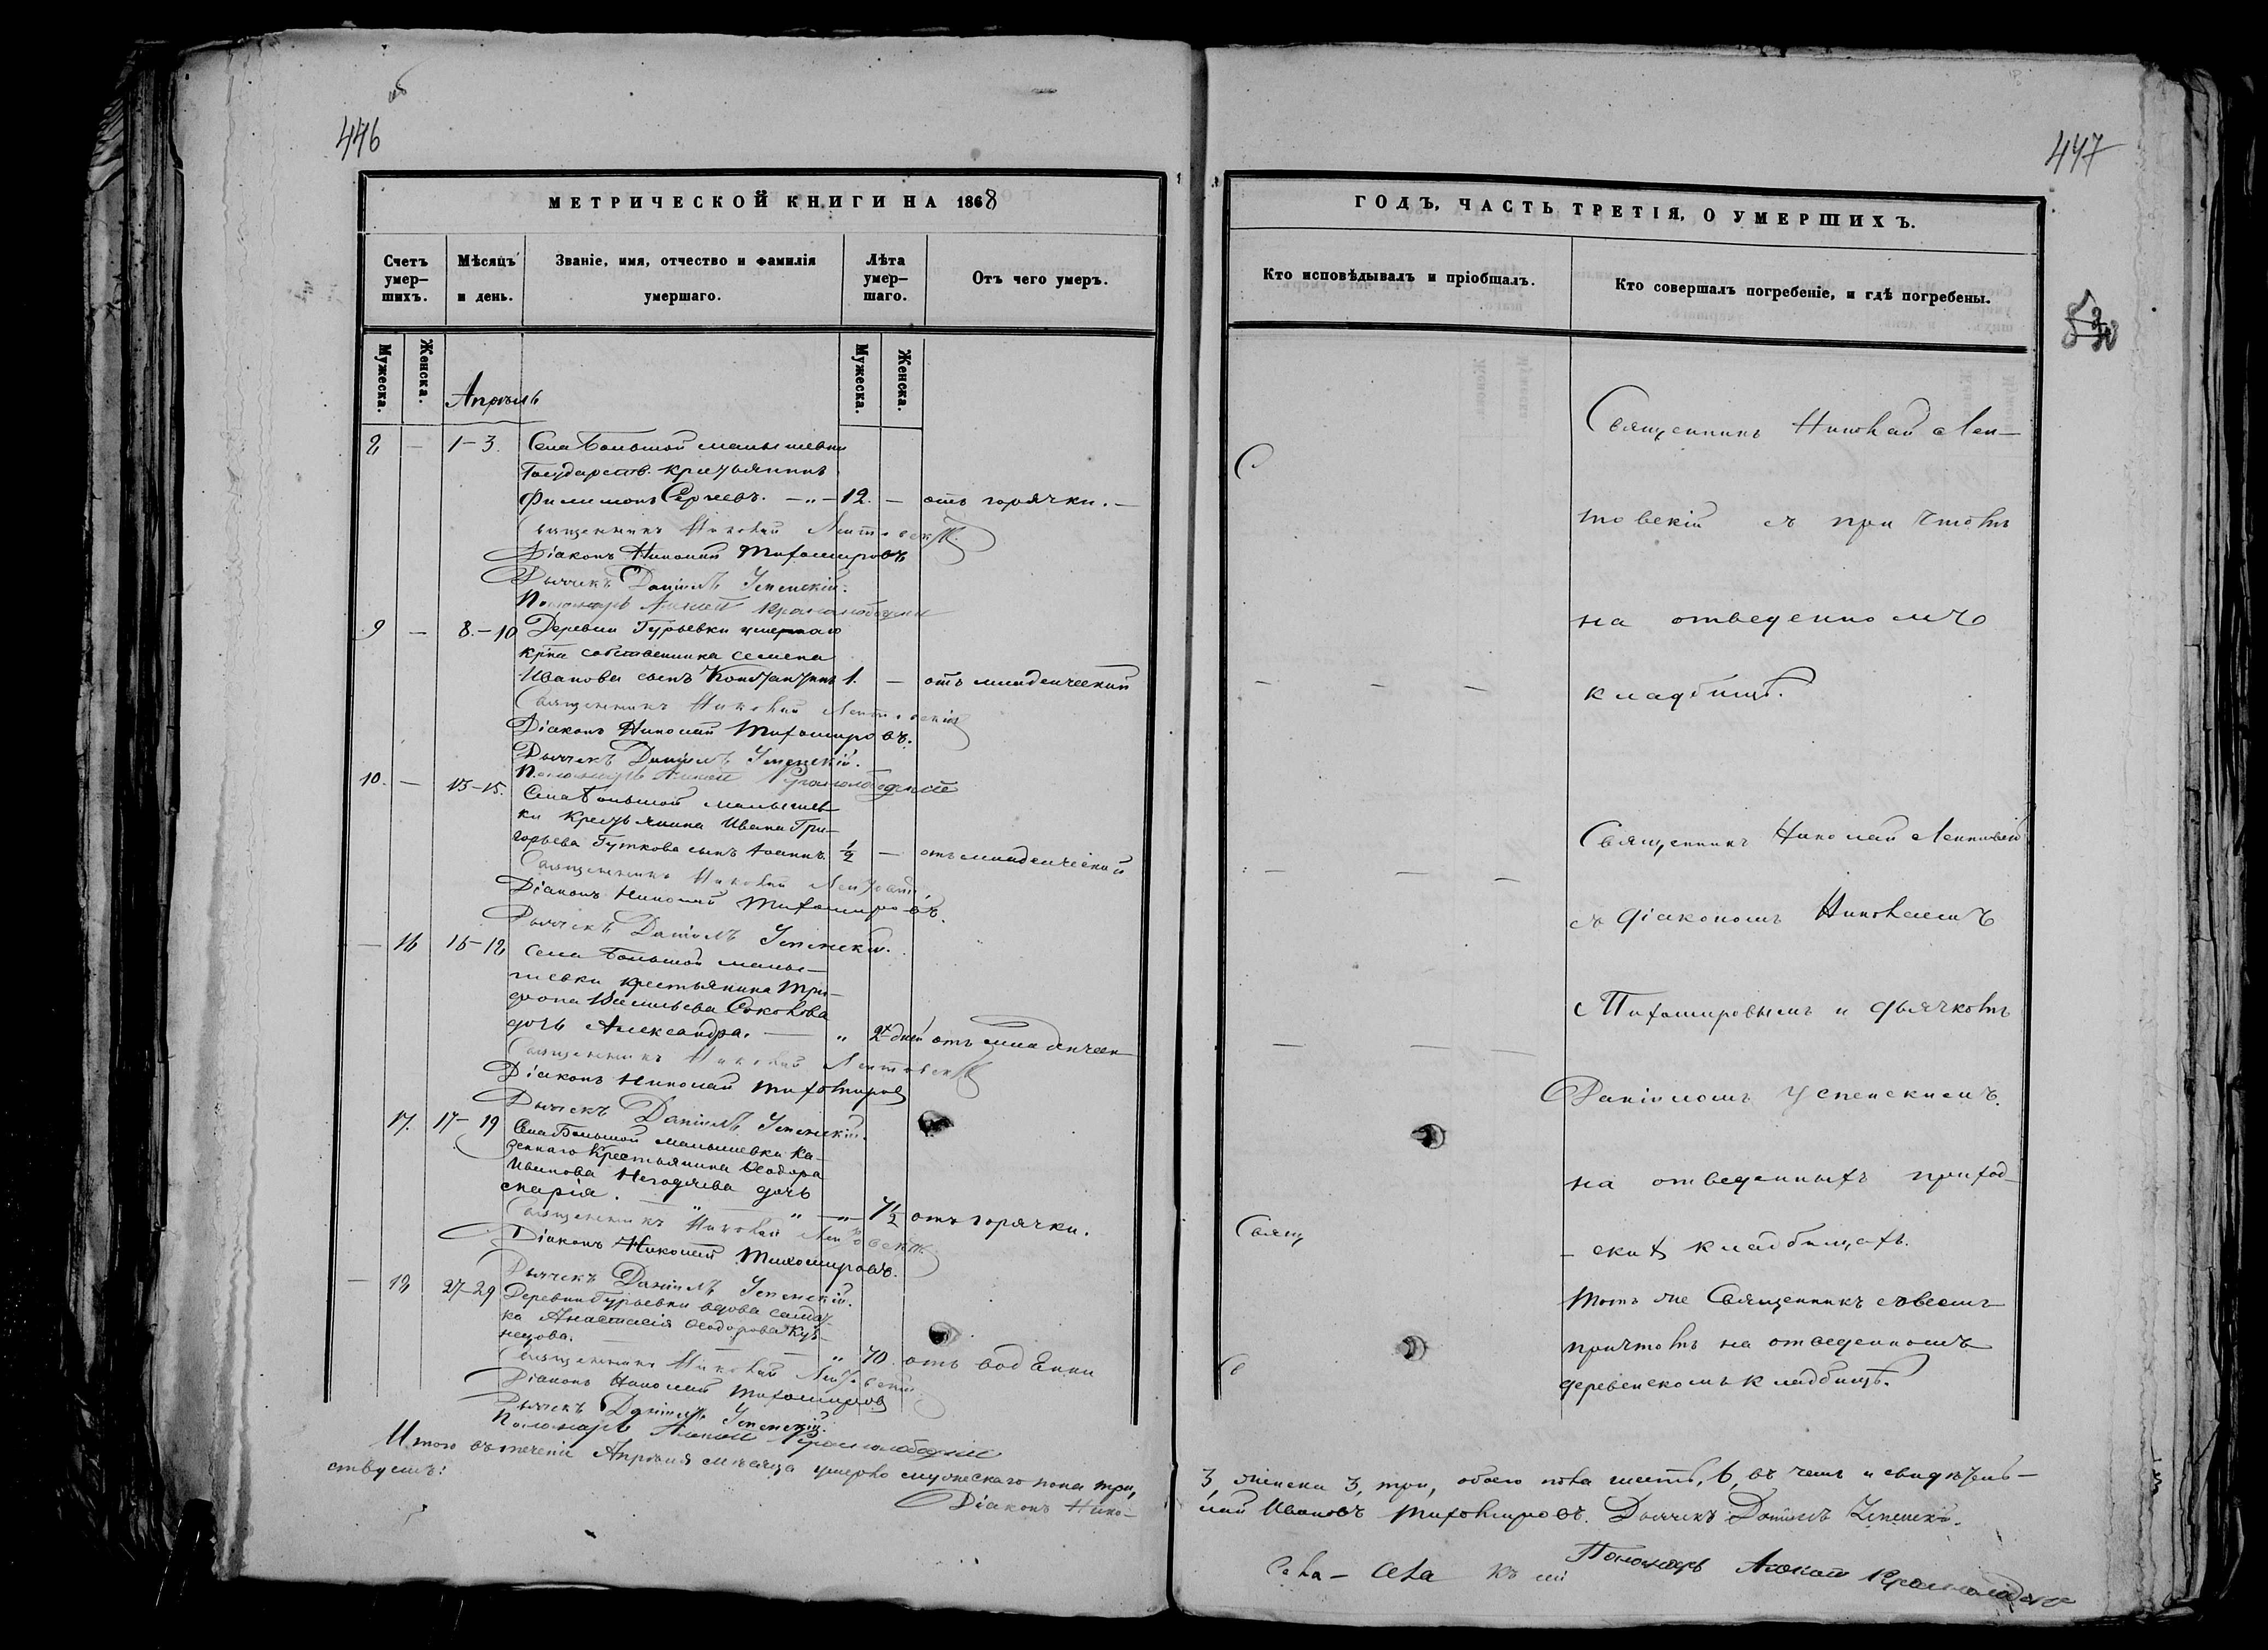 446
МЕТРИЧЕСКОЙ КНИГИ НА 1868
Счетъ умер-шихъ.
Мѣсяцъ и день.
Званіе, имя, отчество и фамилія умершаго.
Лѣта умер-шаго.
Отъ чего умеръ.
Мужеска.
Женска.
Мужеска.
Женска.
Апрѣль
8 — 1-3. Села Большой малышевки
Государств. крестьянинъ
Филимонъ Сергеевъ. — „ — 12. — отъ горячки. —
Священникъ Николай Лентовскій
Діаконъ Николай Тихомировъ
Дьячекъ Даніилъ Успенскій.
Пономарь
9 — 8.-10 Деревни Гурьевки умершаго
крѣн собственника Семена
Иванова сынъ Константинъ 1. — отъ младенческой
Священникъ Николай Лентовскій
Діаконъ Николай Тихомировъ.
Дьячекъ Даніилъ Успенскій.
Пономарь
10. — 13-15. Села Большой малышев-
ки крестьянина Ивана Гри-
горьева Гуткова сынъ Іоаннъ. ½ — отъ младенческой
Священникъ Николай Лентовскій
Діаконъ Николай Тихомировъ.
Дьячекъ Даніилъ Успенскій.
— 16 16-18 Села Большой малы-
шевки крестьянина Три-
фона Васильева Соколова
дочь Александра. — „ дней отъ младенческ
Священникъ Николай Лентовскій
Діаконъ Николай Тихомировъ
Дьячекъ Даніилъ Успенскій.
17. 17-19 Села Большой малышевки ка-
зеннаго крестьянина Ѳеодора
Иванова Негодяева дочь
Марія. — „ „ — ½ отъ горячки.
Священникъ Николай Лентовскій
Діаконъ Николай Тихомировъ.
Дьячекъ Даніилъ Успенскій.
— 18 27-29 Деревни Гурьевки вдова солдат-
ка Анастасія Ѳеодорова Куз-
нецова. — „ 70. отъ водянки
Священникъ Николай Лентовскій
Діаконъ Николай Тихомировъ
Дьячекъ Даніилъ Успенскій.
Пономарь
Итого въ теченіи Апрѣля мѣсяца умерло мужескаго пола три,
ствуемъ:
Діаконъ Нико-
447
ГОДЪ, ЧАСТЬ ТРЕТІЯ, О УМЕРШИХЪ.
Кто исповѣдывалъ и пріобщалъ.
Кто совершалъ погребеніе, и гдѣ погребены.
С
Священникъ Николай Лен-
товскій съ причтомъ
на отведенномъ
кладбищѣ.
Священникъ Николай Лентовскій
съ діакономъ Николаемъ
Тихомировымъ и дьячкомъ
Даніиломъ Успенскимъ.
на отведенныхъ приход-
Свящ
- скихъ кладбищахъ.
Тотъ же Священникъ со всемъ
причтомъ на отведенномъ
С
деревенскомъ кладбищѣ.
3, женска 3, три, обоего пола шесть, 6, въ чемъ и свидѣтель-
лай Ивановъ Тихомировъ. Дьячекъ Даніилъ Успенскій.
Пономарь